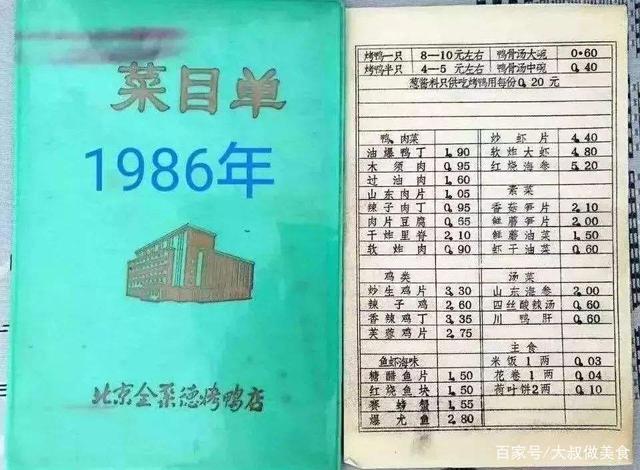 菜目单
1986年
北京全聚德烤鸭店
烤鸭一只 8—10元左右 鸭骨汤大碗 0.60
烤鸭半只 4—5元左右 鸭骨汤中碗 0.40
葱酱料只供吃烤鸭用每份0.20元
鸭、肉菜
油爆鸭丁 1.90
木须肉 0.95
过油肉 1.60
山东肉片 1.05
辣子肉丁 0.95
肉片豆腐 0.65
干炸里脊 2.10
软炸肉 0.90
鸡类
炒生鸡片 3.30
辣子鸡 2.60
香辣鸡丁 3.35
芙蓉鸡片 2.75
鱼虾海味
糖醋鱼片 1.50
红烧鱼块 1.50
赛螃蟹 1.55
爆尤鱼 2.80
炒虾片 4.40
软炸大虾 4.80
红烧海参 5.20
素菜
香菇笋片 2.10
鲜蘑笋片 2.00
鲜蘑油菜 1.50
虾干油菜 0.60
汤菜
山东海参 2.00
四丝酸辣汤 0.60
川鸭肝 0.60
主食
米饭1两 0.03
花卷1两 0.04
荷叶饼2两 0.10
百家号/大叔做美食